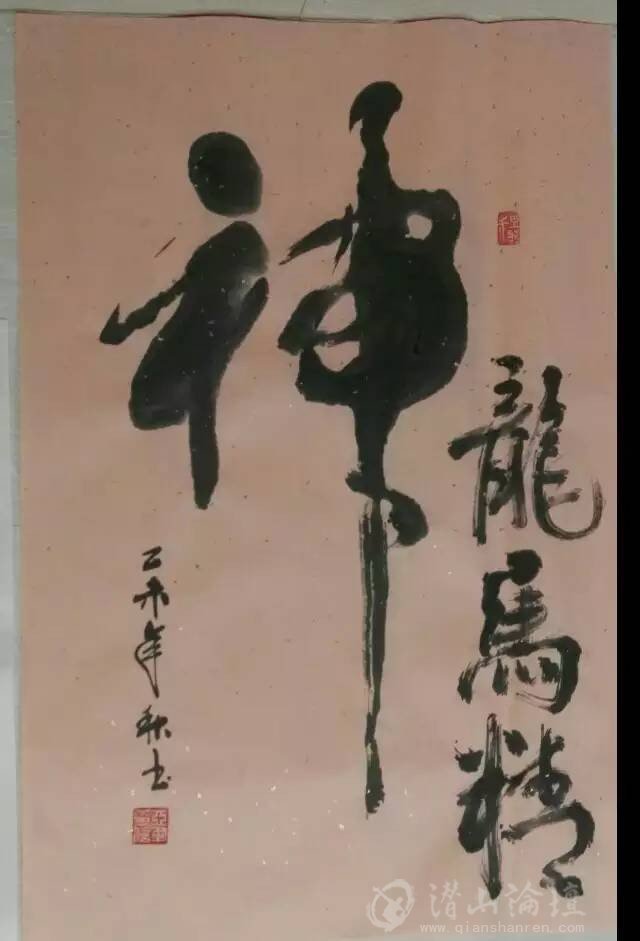 龍馬精
神
乙未年秋书
潜山论坛
www.qianshanren.com